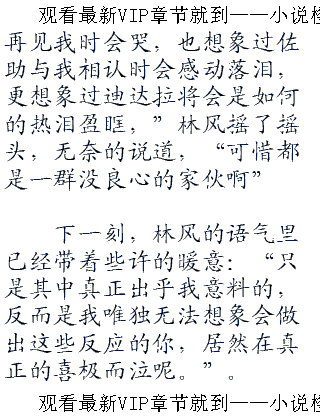 观看最新VIP章节就到——小说检
再见我时会哭，也想象过佐
助与我相认时会感动落泪，
更想象过迪达拉将会是如何
的热泪盈眶，”林风摇了摇
头，无奈的说道，“可惜都
是一群没良心的家伙啊”
下一刻，林风的语气里
已经带着些许的暖意：“只
是其中真正出乎我意料的，
反而是我唯独无法想象会做
出这些反应的你，居然在真
正的喜极而泣呢。”。
观看最新VIP章节就到——小说检